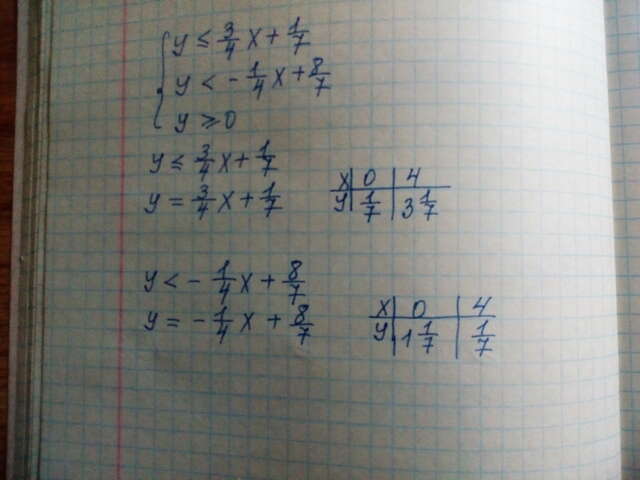 y ≤ 3/4 x + 1/7
y < - 1/4 x + 8/7
y ≥ 0
y ≤ 3/4 x + 1/7
y = 3/4 x + 1/7
x | 0 | 4
y | 1/7 | 3 1/7
y < - 1/4 x + 8/7
y = - 1/4 x + 8/7
x | 0 | 4
y | 1 1/7 | 1/7